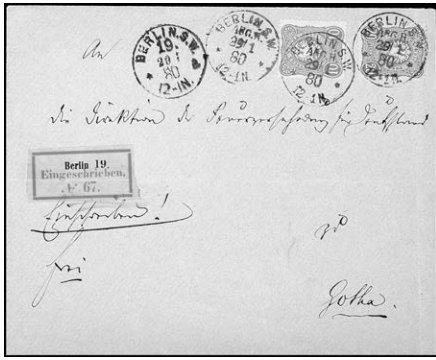 BERLIN.S.W.
19.
29 1
80
12-1N.
BERLIN.S.W.
ANG.H.
29/1
80
12-1N.
BERLIN.S.W.
ANG.H.
29/1
80
12-1N.
BERLIN.S.W.
ANG.H.
29/1
80
12-1N.
An
die Direktion der Feuerversicherung für Deutschland
Berlin 19.
Eingeschrieben.
№ 67.
Einschreiben!
zu
frei
Gotha.